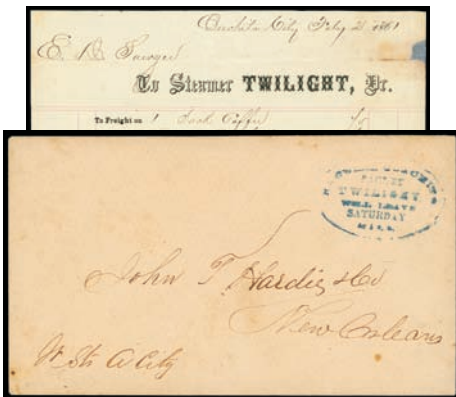 Ouachita City Feby 2 1861
E. B. Sawyer
To Steamer TWILIGHT, Dr.
To Freight on 1 Sack Coffee
REGULAR OUACHITA
PACKET
TWILIGHT
WILL LEAVE
SATURDAY
John T Hardie & Co
New Orleans
Str A City